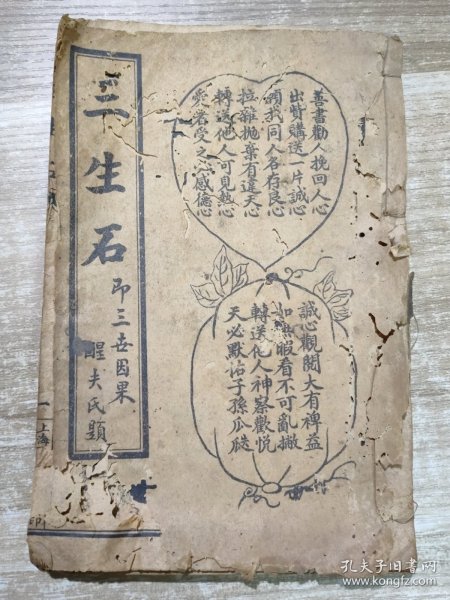 三生石
即三世因果
醒夫氏題
善書勸人挽回人心
出貲購送一片誠心
願我同人各存良心
拉雜抛棄有違天心
轉送他人可見熱心
受者受之心感德心
誠心觀閱大有裨益
如無暇看不可亂撇
轉送他人神察歡悦
天必默佑子孫瓜瓞
一上海
印
孔夫子旧书网
www.kongfz.com